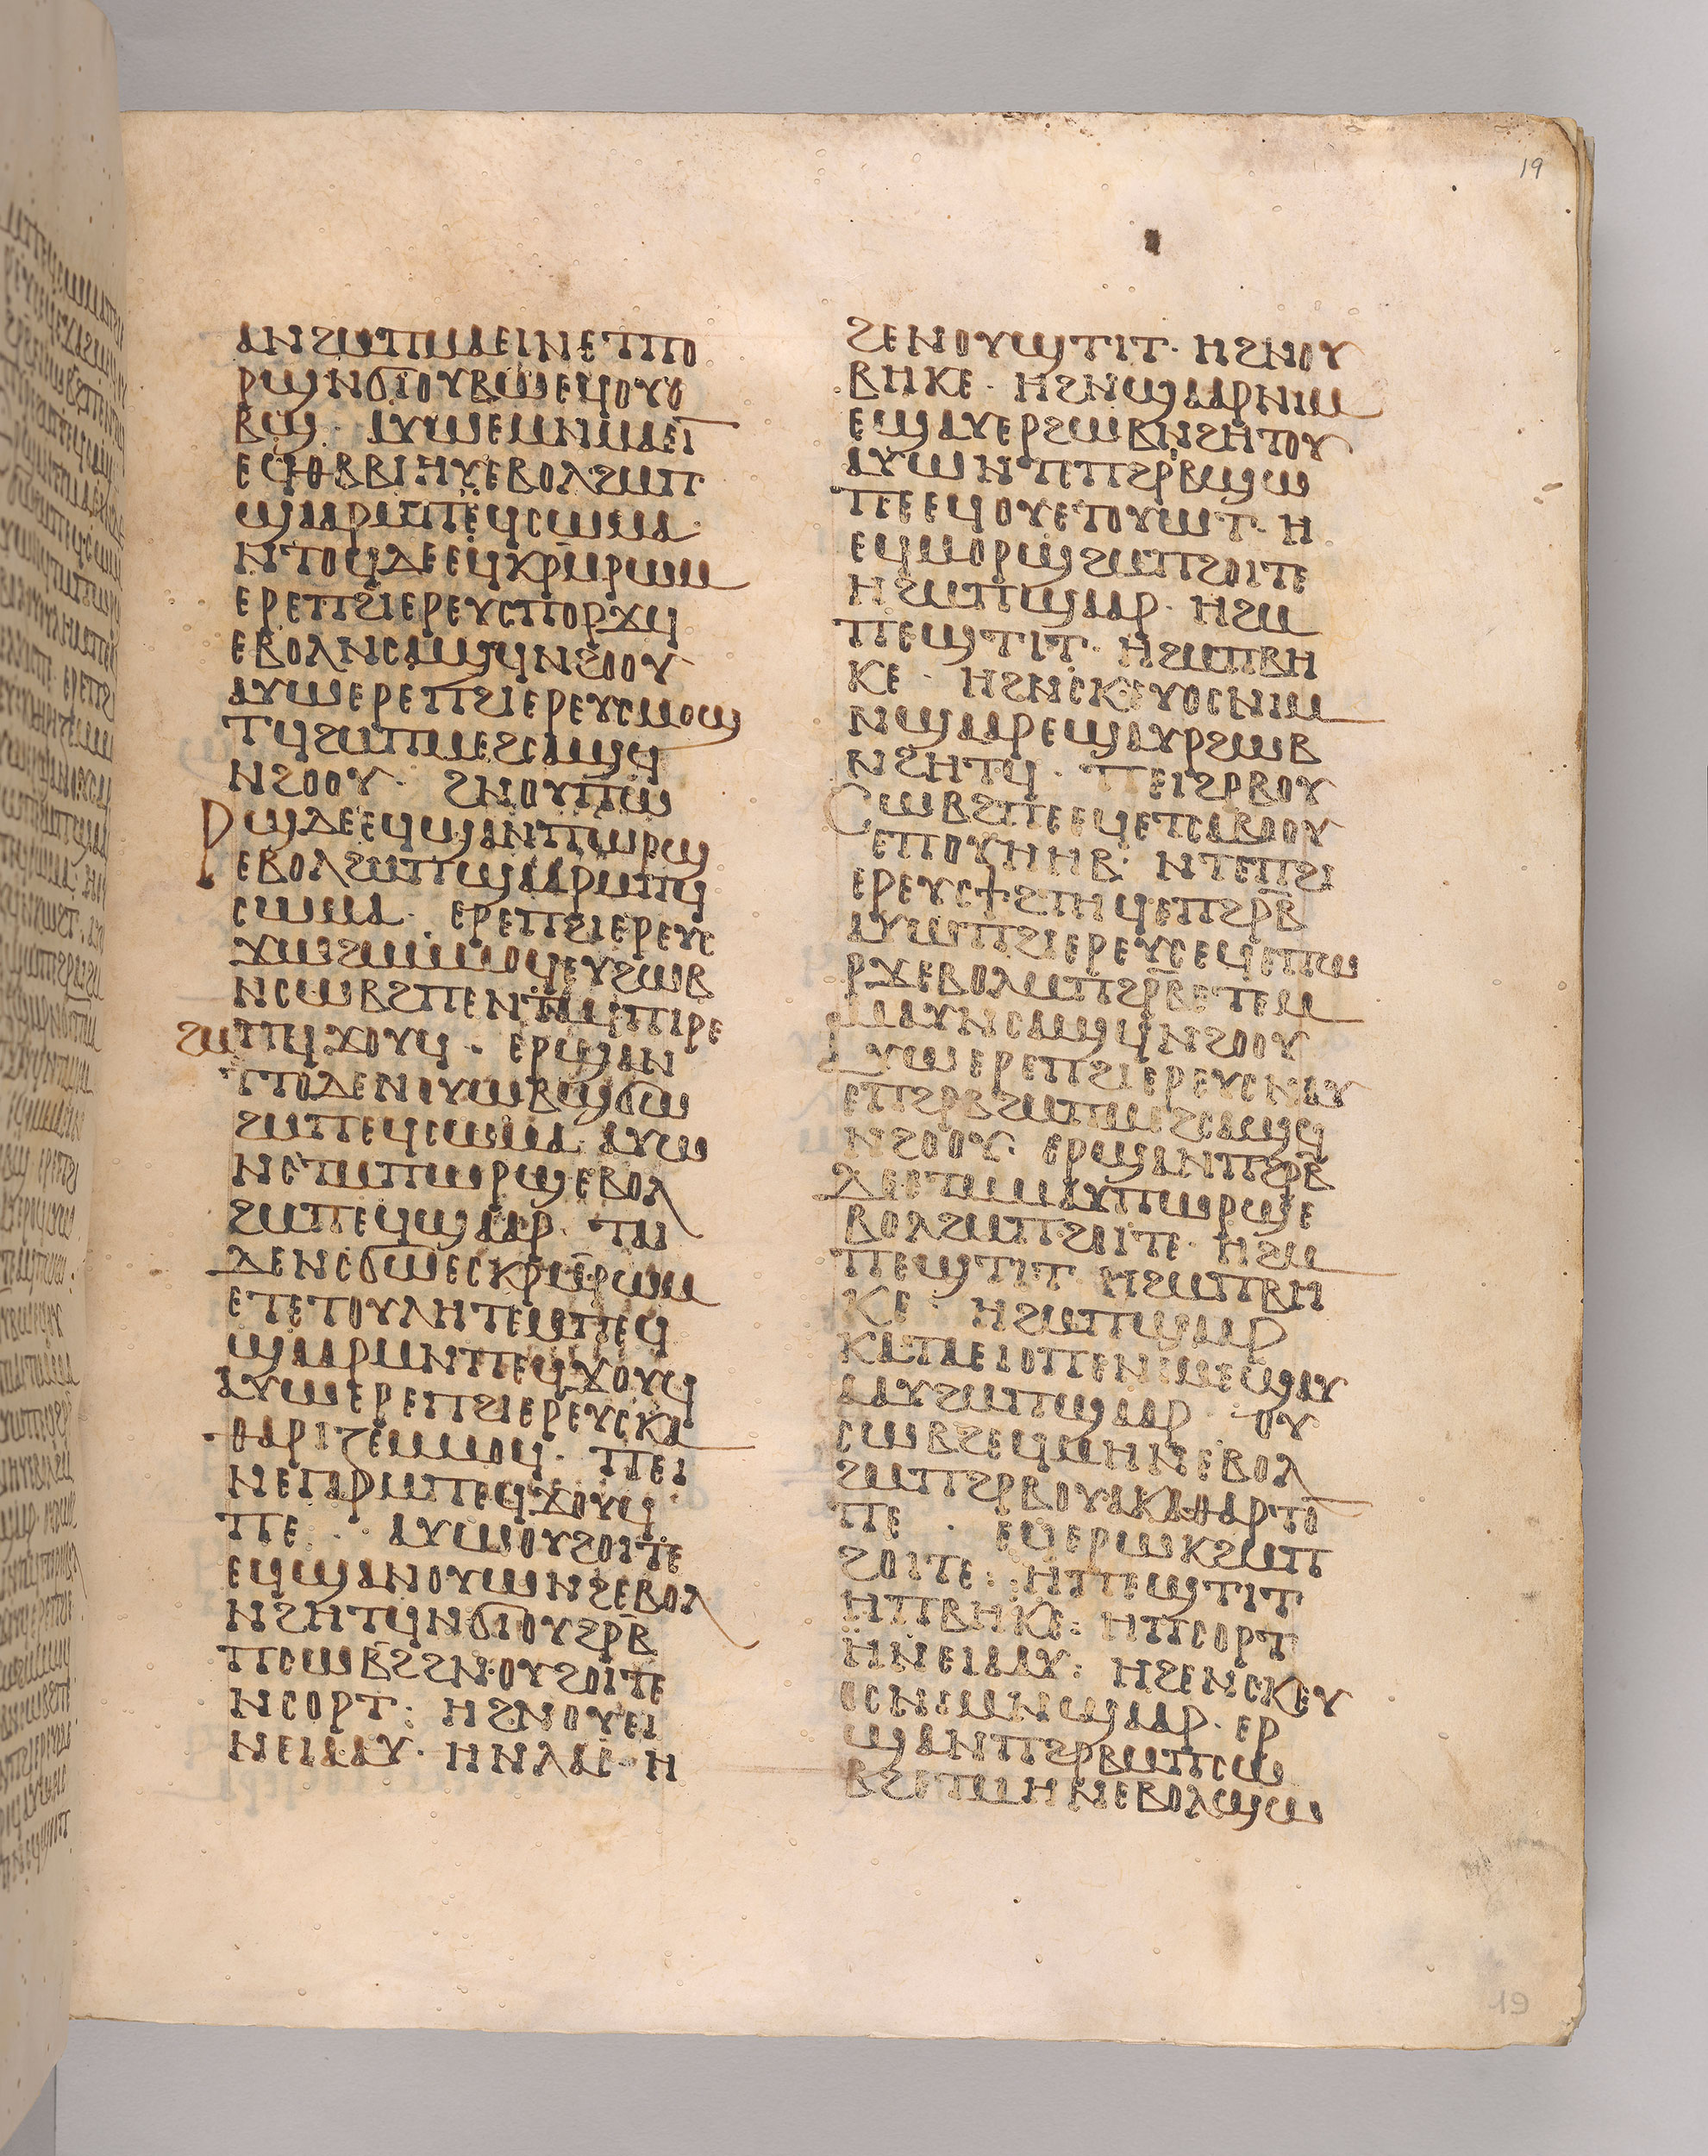 19
ⲁⲛϩⲙⲡⲙⲁⲉⲓⲛⲉⲧⲡⲟ
ⲣϣⲛϭⲓⲟⲩⲃⲱⲉϥⲟⲩⲟ
ⲃϣ· ⲁⲩⲱⲉⲙⲛⲙⲁⲉⲓ
ⲉϥⲑⲃⲃⲓⲏⲩⲉⲃⲟⲗϩⲙⲡ
ϣⲁⲁⲣⲙⲡⲉϥⲥⲱⲙⲁ·
ⲛⲧⲟϥⲇⲉⲉϥⲭⲣⲙⲣⲱⲙ
ⲉⲣⲉⲡϩⲓⲉⲣⲉⲩⲥⲡⲟⲣϫϥ
ⲉⲃⲟⲗⲛⲥⲁϣϥⲛϩⲟⲟⲩ
ⲁⲩⲱⲉⲣⲉⲡϩⲓⲉⲣⲉⲩⲥⲙⲟϣ
ⲧϥϩⲙⲡⲙⲉϩⲥⲁϣϥ
ⲛϩⲟⲟⲩ· ϩⲛⲟⲩⲡⲱ
ⲣϣⲇⲉⲉϥϣⲁⲛⲡⲱⲣϣ
ⲉⲃⲟⲗϩⲙⲡϣⲁⲁⲣⲙⲡϥ
ⲥⲱⲙⲁ· ⲉⲣⲉⲡϩⲓⲉⲣⲉⲩⲥ
ϫⲱϩⲙⲙⲙⲟϥⲉⲩϩⲱⲃ
ⲛⲥⲱⲃϩⲡⲉⲛⲧⲁϥⲡⲓⲣⲉ
ϩⲙⲡϥϫⲟⲩϥ· ⲉⲣϣⲁⲛ
ⲡⲧⲟⲇⲉⲛⲟⲩⲱⲃϣϭⲱ
ϩⲙⲡⲉϥⲥⲱⲙⲁ ⲁⲩⲱ
ⲛⲉⲧⲙⲡⲱⲣϣⲉⲃⲟⲗ
ϩⲙⲡⲉϥϣⲁⲁⲣ· ⲧⲁⲓ
ⲇⲉⲛⲥϭⲱⲉⲥⲭⲣⲙⲣⲱⲙ
ⲉⲧⲉⲧⲟⲩⲗⲏⲧⲉⲙⲡⲉϥ
ϣⲁⲁⲣⲙⲛⲡⲉϥϫⲟⲩϥ
ⲁⲩⲱⲉⲣⲉⲡϩⲓⲉⲣⲉⲩⲥⲕⲁ
ⲑⲁⲣⲓⲍⲉⲙⲙⲟϥ· ⲡⲉⲓ
ⲛⲉⲅⲁⲣⲙⲡⲉϥϫⲟⲩϥ
ⲡⲉ· ⲁⲩⲱⲟⲩϩⲟⲓⲧⲉ
ⲉϥϣⲁⲛⲟⲩⲱⲛϩⲉⲃⲟⲗ
ⲛϩⲏⲧϥⲛϭⲓⲟⲩϩⲣⲃ
ⲡⲥⲱⲃϩϩⲛ·ⲟⲩϩⲟⲓⲧⲉ
ⲛⲥⲟⲣⲧ: ⲏϩⲛⲟⲩⲉⲓ
ⲛⲉⲓⲁⲁⲩ· ⲏⲛⲗⲁⲥ· ⲏ
ϩⲉⲛⲟⲩϣⲧⲓⲧ· ⲏϩⲛⲟⲩ
ⲃⲏⲕⲉ· ⲏϩⲛϣⲁⲁⲣⲛⲓⲙ
ⲉϣⲁⲩⲉⲣϩⲱⲃⲛϩⲏⲧⲟⲩ
ⲁⲩⲱⲛⲧⲡϩⲣⲃϣⲱ
ⲡⲉⲉϥⲟⲩⲉⲧⲟⲩⲱⲧ· ⲏ
ⲉϥⲙⲟⲣϣϩⲙⲡϩⲟⲓⲧⲉ
ⲏϩⲙⲡϣⲁⲁⲣ· ⲏϩⲙ
ⲡⲉϣⲧⲓⲧ· ⲏϩⲙⲡⲃⲏ
ⲕⲉ· ⲏϩⲛⲥⲕⲉⲩⲟⲥⲛⲓⲙ
ⲛϣⲁⲁⲣⲉϣⲁⲩⲣϩⲱⲃ
ⲛϩⲏⲧϥ· ⲡⲉⲓϩⲣⲃⲟⲩ
ⲥⲱⲃϩⲡⲉⲉϥⲉⲧⲥⲁⲃⲟⲟⲩ
ⲉⲡⲟⲩⲏⲏⲃ· ⲛⲧⲉⲡϩⲓ
ⲉⲣⲉⲩⲥϯϩⲧⲏϥⲉⲡϩⲣⲃ
ⲁⲩⲱⲡϩⲓⲉⲣⲉⲩⲥⲉϥⲉⲡⲱ
ⲣϫⲉⲃⲟⲗⲙⲡϩⲣⲃⲉⲧⲉⲙ
ⲙⲁⲩⲛⲥⲁϣϥⲛϩⲟⲟⲩ
ⲁⲩⲱⲉⲣⲉⲡϩⲓⲉⲣⲉⲩⲥⲛⲁⲩ
ⲉⲡϩⲣⲃϩⲙⲡⲙⲉϩⲥⲁϣϥ
ⲛϩⲟⲟⲩ· ⲉⲣϣⲁⲛⲡϩⲣⲃ
ⲇⲉⲉⲧⲙⲙⲁⲩⲡⲱⲣϣⲉ
ⲃⲟⲗϩⲙⲡϩⲟⲓⲧⲉ· ⲏϩⲙ
ⲡⲉϣⲧⲓⲧ· ⲏϩⲙⲡⲃⲏ
ⲕⲉ· ⲏϩⲙⲡϣⲁⲁⲣ
ⲕⲁⲧⲁⲉⲓⲟⲡⲉⲛⲓⲙⲉϣⲁⲩ
ⲁⲁⲩϩⲙⲡϣⲁⲁⲣ· ⲟⲩ
ⲥⲱⲃϩⲉϥⲙⲏⲛⲉⲃⲟⲗ
ϩⲙⲡϩⲣⲃⲟⲩⲁⲕⲁⲑⲁⲣⲧⲟ
ⲡⲉ · ⲉϥⲉⲣⲱⲕϩⲙⲡ
ϩⲟⲓⲧⲉ: ⲏⲡⲉϣⲧⲓⲧ
ⲏⲡⲃⲏⲕⲉ: ⲏⲡⲥⲟⲣⲧ
ⲏⲛⲉⲓⲁⲁⲩ: ⲏϩⲉⲛⲥⲕⲉⲩ
ⲟⲥⲛⲓⲙⲛϣⲁⲁⲣ· ⲉⲣ
ϣⲁⲛⲡϩⲣⲃⲙⲡⲥⲱ
ⲃϩⲉⲧⲙⲏⲛⲉⲃⲟⲗϣⲱ
19